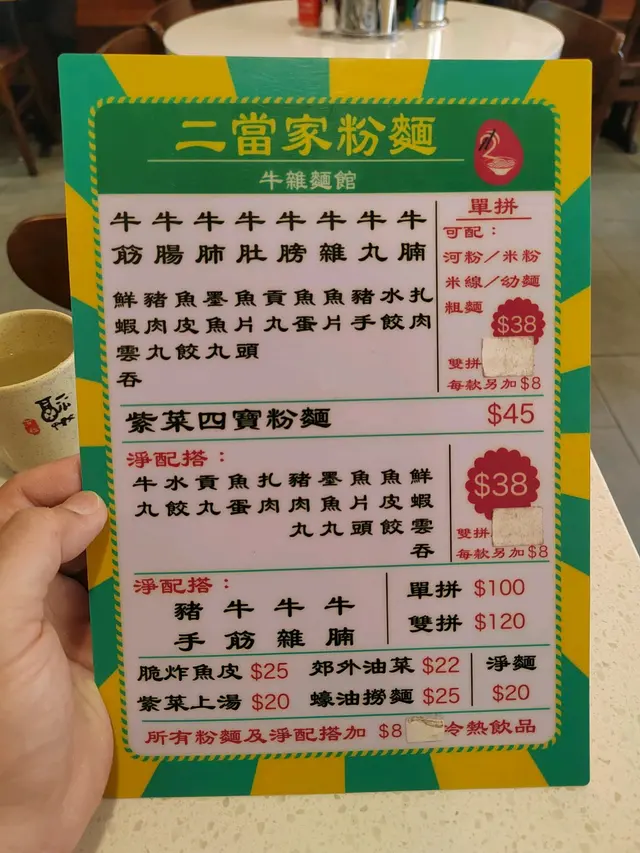 二當家粉麵
牛雜麵館
牛筋
牛腸
牛肺
牛肚
牛膀
牛雜
牛丸
牛腩
鮮蝦雲吞
豬肉丸
魚皮餃
墨魚丸
魚片頭
貢丸
魚蛋
魚片
豬手
水餃
扎肉
單拼
可配：
河粉/米粉
米線/幼麵
粗麵
$38
雙拼
每款另加$8
紫菜四寶粉麵 $45
淨配搭：
牛丸
水餃
貢丸
魚蛋
扎肉
豬肉丸
墨魚丸
魚片頭
魚皮餃
鮮蝦雲吞
$38
雙拼
每款另加$8
淨配搭：
豬手
牛筋
牛雜
牛腩
單拼 $100
雙拼 $120
脆炸魚皮 $25
郊外油菜 $22
紫菜上湯 $20
蠔油撈麵 $25
淨麵
$20
所有粉麵及淨配搭加 $8 冷熱飲品